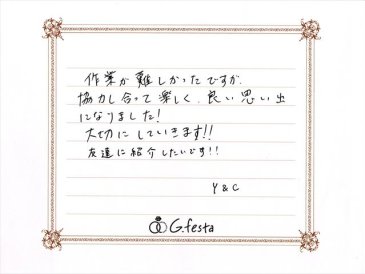 作業が難しかったですが、
協力し合って楽しく、良い思い出
になりました!
大切にしていきます!!
友達に紹介したいです!!
Y & C
G.festa